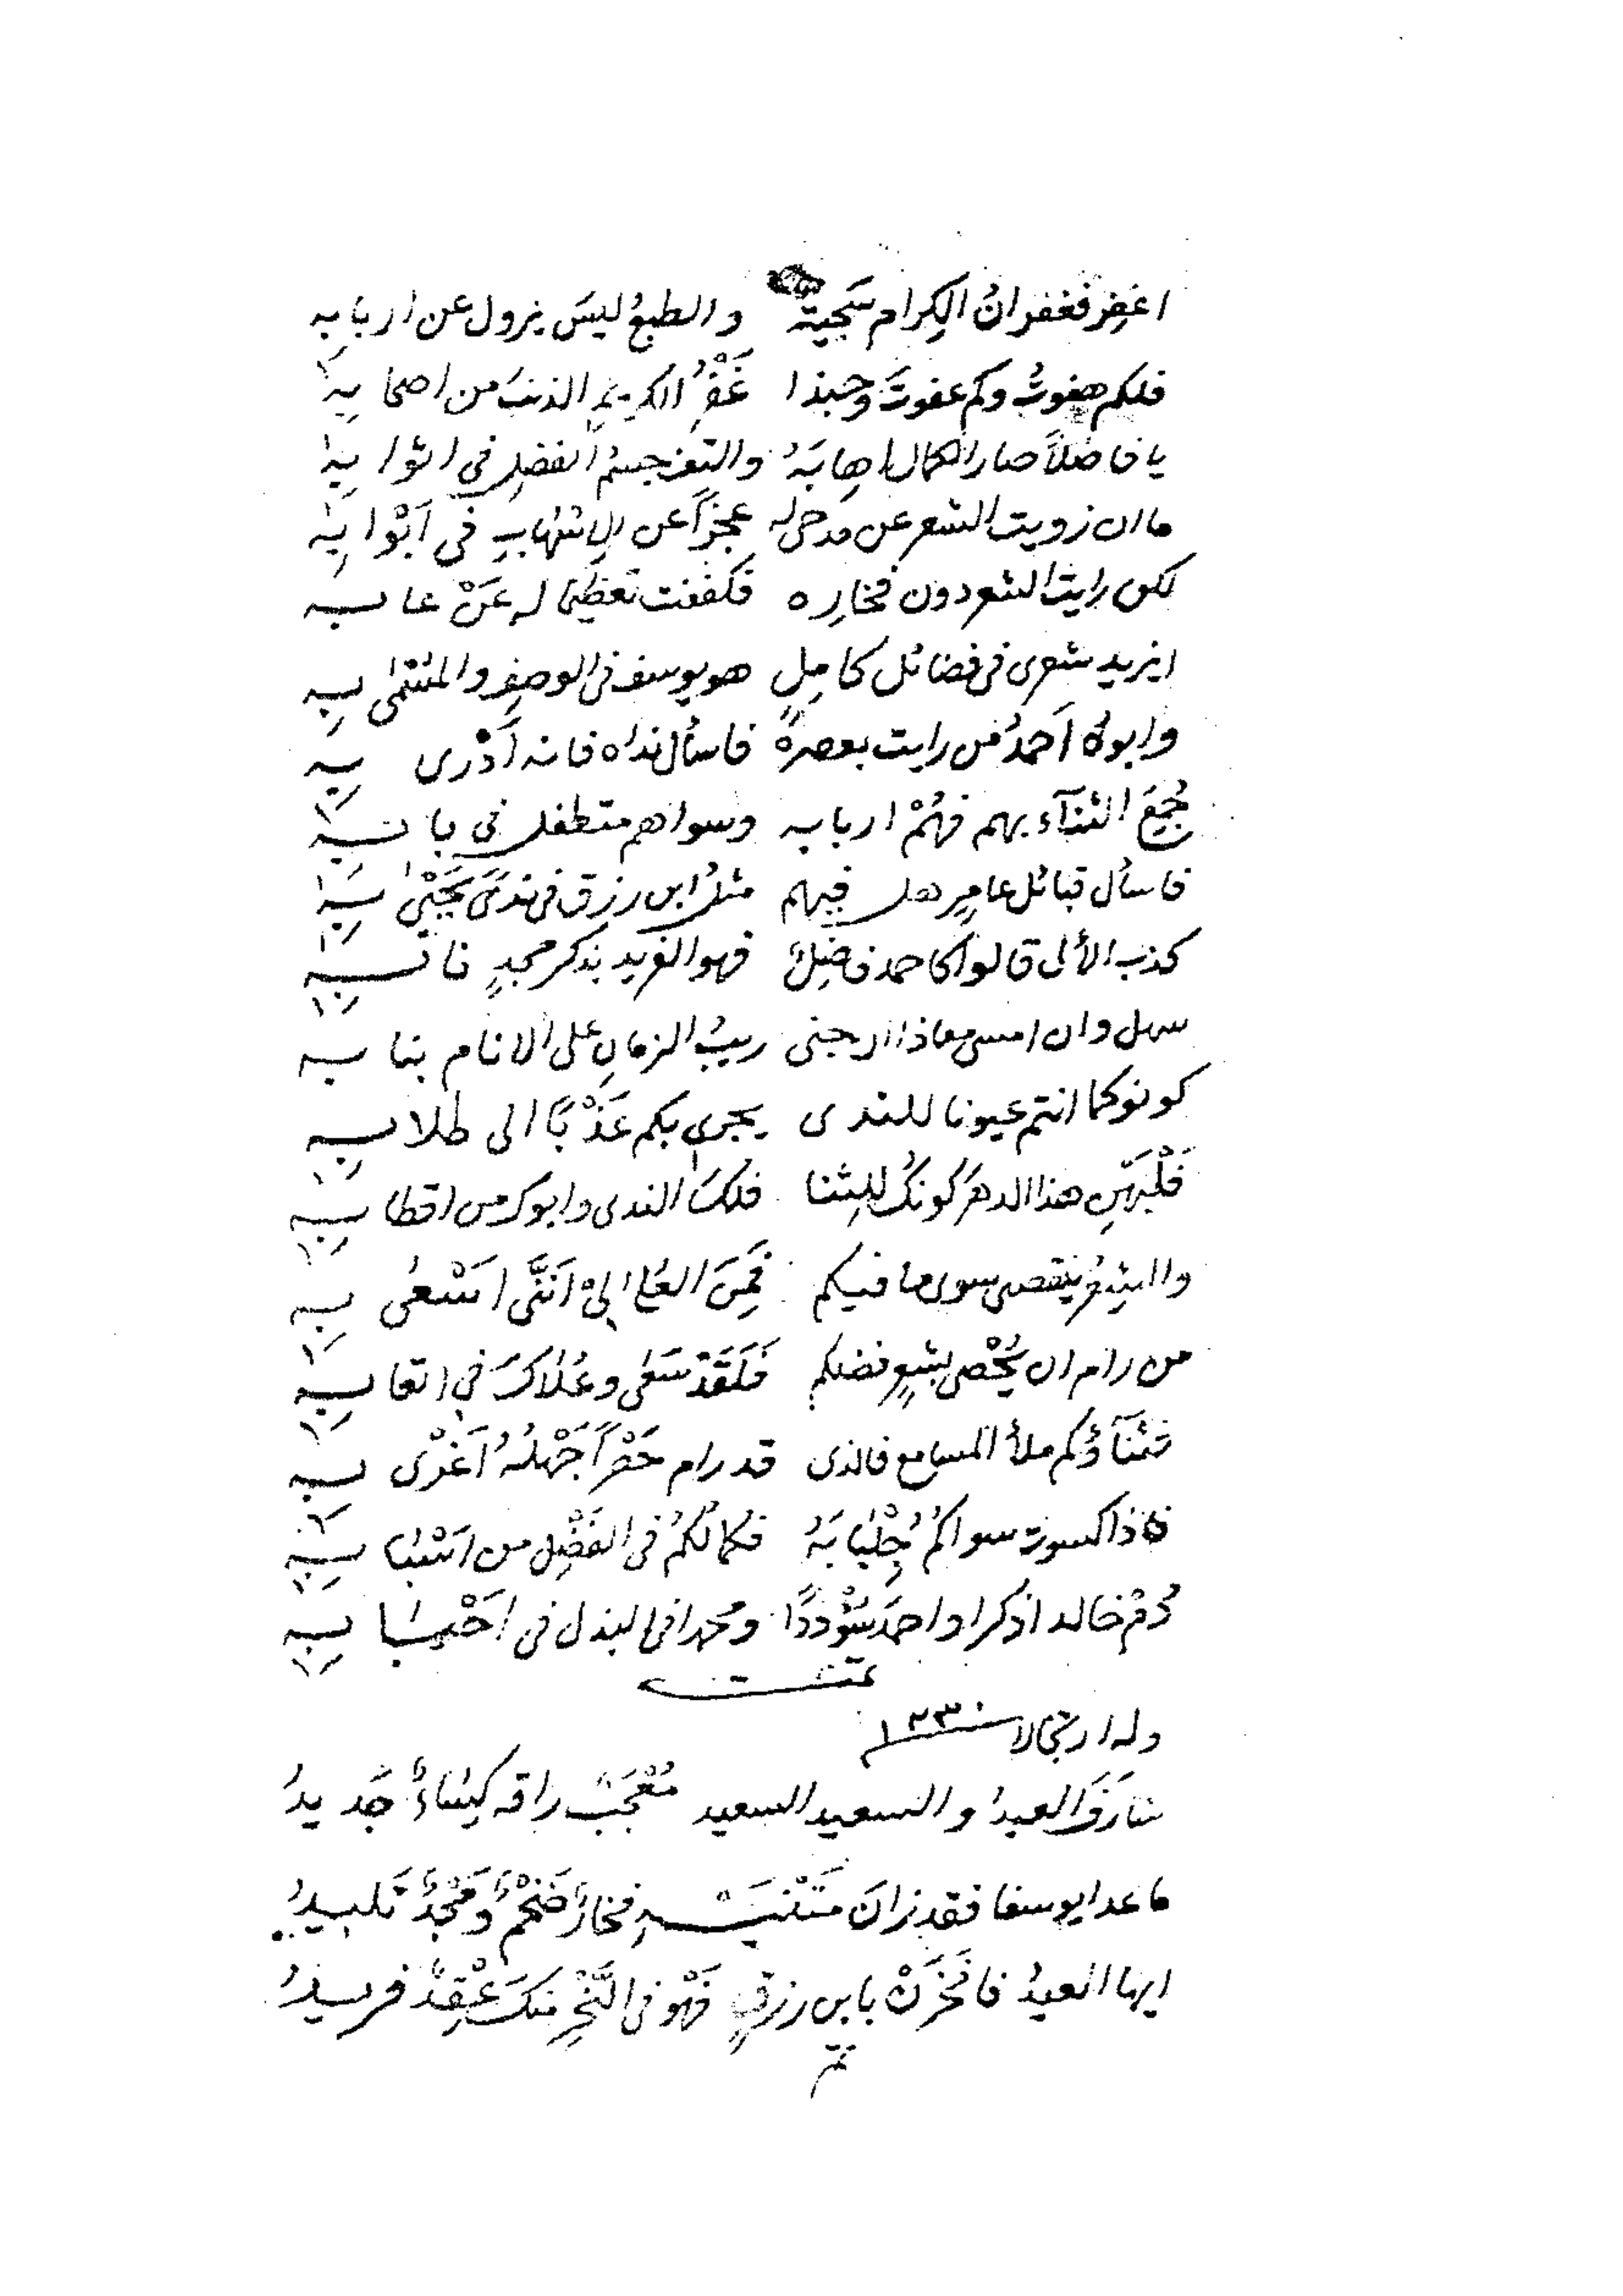 اغفِر فغفرانُ الكِرام سَجيّة والطبعُ ليسَ يزول عن اربابِهِ
فلكم هفوتُ وكم عفوتَ وحبذا غَفْرُ الكريمِ الذنبَ من اصحابِهِ
يا فاضلاً صار الكمال اهابَهُ والتف جسمُ الفضلِ في اثوابِهِ
ما ان زويت الشعر عن مدحى له عجزاً عن الاسْهابِ في اَبْوابِهِ
لكن رايت الشعر دون فخارِه فكففت تعظيما له عَنْ عابه
ايزيد شعرى فى فضائل كامِلٍ هو يوسف فى الوصفِ والمُنْتمٰى بِهِ
وابوه اَحمدُ من رايت بعصرهِ فاسأل نداه فانه اَدْرى بِهِ
جُمِعَ الثنآء بهم فهُمْ اربابه وسواهم متطفل فى بابِهِ
فاسأل قبائل عامرٍ هل فيهم مثلُ ابن رزق فى ندىً يُحْيٰى بِهِ
كذب الألى قالوا كاحمد فاضِلٌ فهو الفريد بذكر مجدٍ نابِهِ
سهل وان امسى معاذا ان جنى ريبُ الزمانِ على الانام بنابه
كونوا كما انتم عيونا للندى يجرى بكم عَذْبًا الى طلابِهِ
فَلْيَهْنِ هذا الدهرَ كونكُ للِثنا فلكَ الندى وابوك من اقطابِهِ
والشِعرُ ينقص سوى ما فيكم فَمِنَ العُلا اِلىْ اَنَّنى اَسْعٰى بِهِ
من رام ان يُحْصى بشِعرٍ فضلكم فَلَقَدْ سَعٰى وعُلاكَ فى اتعابِهِ
فثنَآؤكم ملأ المسامع فالذى قد رام حَصْراً جَهْلُهُ اَغْرٰى بِهِ
فاذا كسوت سواكُمُ جِلْبابَهُ فكمالكُمُ فى الفَضْلِ من اَسْبابِهِ
دُمْ خالد اذكرا واحمدَ سُؤْددًا ومحمدا فى البذل فى اَحْسابِهِ
تمت
وله ارتجالا سنة ١٢٣٠
شارَفَ العيدُ والسعيد السعيد مُعْجَبٌ راقه كِساءٌ جَديدُ
ما عدا يوسفا فقد زانَ مَتْنَيْهِ فخارٌ ضَخْمٌ وَمَجْدٌ تَليدُ
ايها العيدُ فافْخَرَنْ بابن رزقٍ فَهْوَ فى النَّحْرِ منكَ عِقْدٌ فريدُ
تم